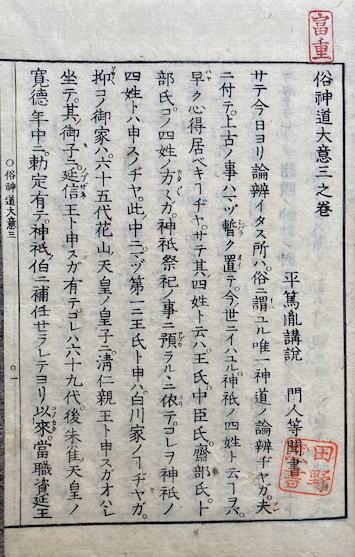 富重
俗神道大意三之卷
平篤胤講説　門人等聞書
サテ今日ヨリ論辨イタス所ハ。俗ニ謂ユル唯一神道ノ論辨ヂヤガ。夫
ニ付テ。上古ノ事ハマヅ暫ク置テ。今世ニイハユル神祇ノ四姓ト云ヿヲ。
早ク心得居ベキヿヂヤ。サテ其四姓ト云ハ。王氏。中臣氏。齋部氏。卜
部氏。コノ四姓ノ方々ガ。神祇祭祀ノ事ニ預ラルヽニ依テ。コレヲ神祇ノ
四姓トハ申スノヂヤ。此中ニマヅ第一ニ王氏ト申ハ。白川家ノヿヂヤガ。
抑コノ御家ハ。六十五代花山天皇ノ皇子ニ。淸仁親王ト申スガオハレ
坐テ。其御子ニ延信王ト申スガ有テ。コレハ六十九代後朱雀天皇ノ
寛德年中ニ。勅定有テ。神祇伯ニ補任せラレテヨリ以來。當職資延王
○俗神道大意三
田野